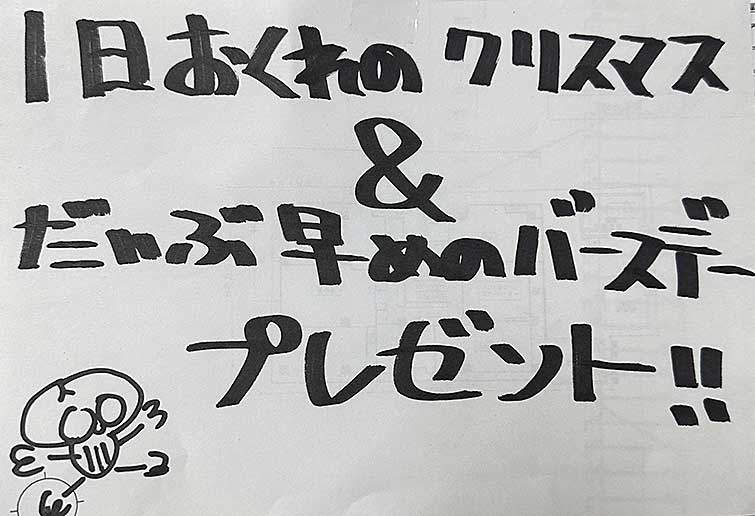 1日おくれのクリスマス
&
だいぶ早めのバースデー
プレゼント!!